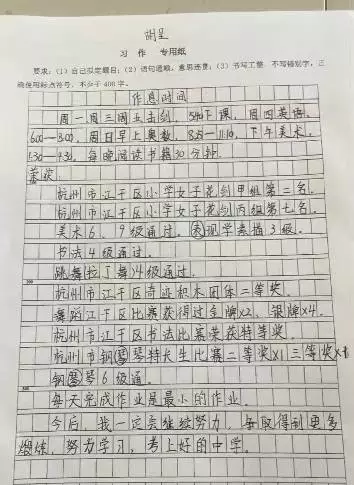 谢呈
习 作 专用纸
要求：(1)自己拟定题目；(2)语句通顺，意思连贯；(3)书写工整，不写错别字，正
确使用标点符号，不少于400字。
作息时间
周一周三周五击剑，5:40下课，周四英语，
6:00—8:00，周日早上奥数，8:25—11:10，下午美术，
1:30—4:30，每晚阅读书籍30分钟。
荣获
杭州市江干区小学女子花剑甲组第二名。
杭州市江干区小学女子花剑丙组第七名。
美术6、9级通过。表现学素描3级。
书法4级通过。
跳舞(拉丁舞)4级通过。
杭州市江干区奇迹积木团体二等奖。
舞蹈江干区比赛获得过金牌×2、银牌×4。
杭州市江干区书法比赛荣获特等奖
杭州市钢琴特长生比赛二等奖×1 三等奖×1
钢琴6级通。
每天完成作业是最小的作业。
今后，我一定会继续努力，争取得到更多
锻炼，努力学习，考上好的中学。